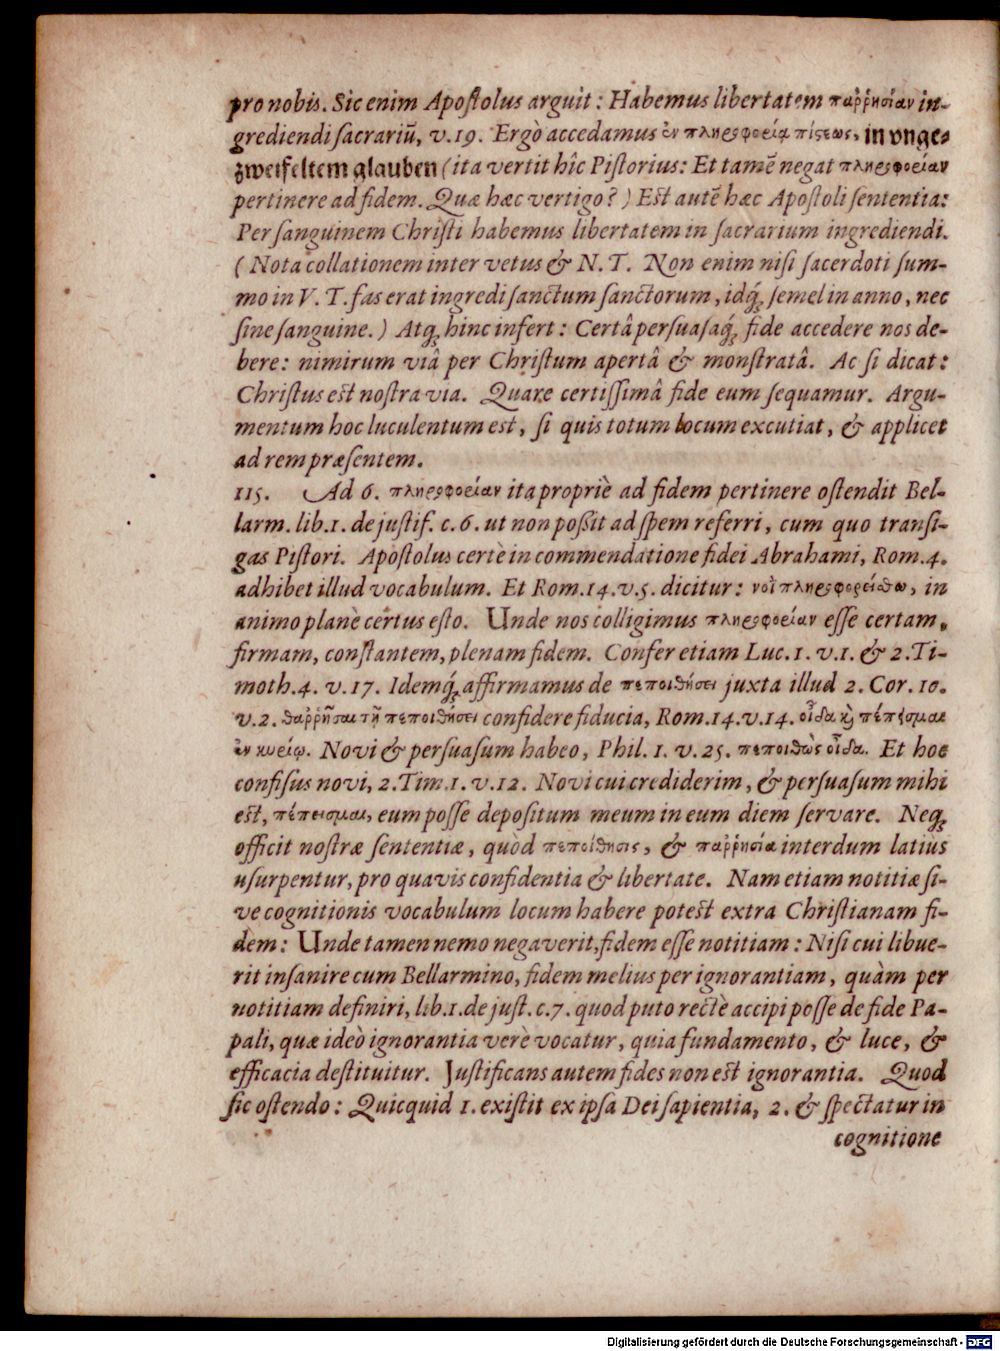 pro nobis. Sic enim Apostolus arguit: Habemus libertatem παῤῥησίαν in-
grediendi sacrariũ, v. 19. Ergò accedamus ἐν πληροφορίᾳ πίστεως, in vnge-
zweifeltem glauben (ita vertit hîc Pistorius: Et tamẽ negat πληροφορίαν
pertinere ad fidem. Quæ hæc vertigo?) Est autẽ hæc Apostoli sententia:
Per sanguinem Christi habemus libertatem in sacrarium ingrediendi.
(Nota collationem inter vetus & N. T. Non enim nisi sacerdoti sum-
mo in V. T. fas erat ingredi sanctum sanctorum, idq́; semel in anno, nec
sine sanguine.) Atq; hinc infert: Certâ persuasaq́; fide accedere nos de-
bere: nimirum viâ per Christum apertâ & monstratâ. Ac si dicat:
Christus est nostra via. Quare certissimâ fide eum sequamur. Argu-
mentum hoc luculentum est, si quis totum locum excutiat, & applicet
ad rem præsentem.
115. Ad 6. πληροφορίαν ita propriè ad fidem pertinere ostendit Bel-
larm. lib. 1. de justif. c. 6. ut non possit ad spem referri, cum quo transi-
gas Pistori. Apostolus certè in commendatione fidei Abrahami, Rom. 4.
adhibet illud vocabulum. Et Rom. 14. v. 5. dicitur: νοῒ πληροφορείσθω, in
animo planè certus esto. Unde nos colligimus πληροφορίαν esse certam,
firmam, constantem, plenam fidem. Confer etiam Luc. 1. v. 1. & 2. Ti-
moth. 4. v. 17. Idemq́; affirmamus de πεποιθήσει juxta illud 2. Cor. 10.
v. 2. θαῤῥῆσαι τῇ πεποιθήσει confidere fiducia, Rom. 14. v. 14. οἶδα κὶ πέπεισμαι
ἐν κυρίῳ. Novi & persuasum habeo, Phil. 1. v. 25. πεποιθὼς οἶδα. Et hoc
confisus novi, 2. Tim. 1. v. 12. Novi cui crediderim, & persuasum mihi
est, πέπεισμαι, eum posse depositum meum in eum diem servare. Neq;
officit nostræ sententiæ, quòd πεποίθησις, & παῤῥησία interdum latiùs
usurpentur, pro quavis confidentia & libertate. Nam etiam notitiæ si-
ve cognitionis vocabulum locum habere potest extra Christianam fi-
dem: Unde tamen nemo negaverit, fidem esse notitiam: Nisi cui libue-
rit insanire cum Bellarmino, fidem melius per ignorantiam, quàm per
notitiam definiri, lib. 1. de just. c. 7. quod puto rectè accipi posse de fide Pa-
pali, quæ ideò ignorantia verè vocatur, quia fundamento, & luce, &
efficacia destituitur. Justificans autem fides non est ignorantia. Quod
sic ostendo: Quicquid 1. existit ex ipsa Dei sapientia, 2. & spectatur in
cognitione
Digitalisierung gefördert durch die Deutsche Forschungsgemeinschaft - DFG